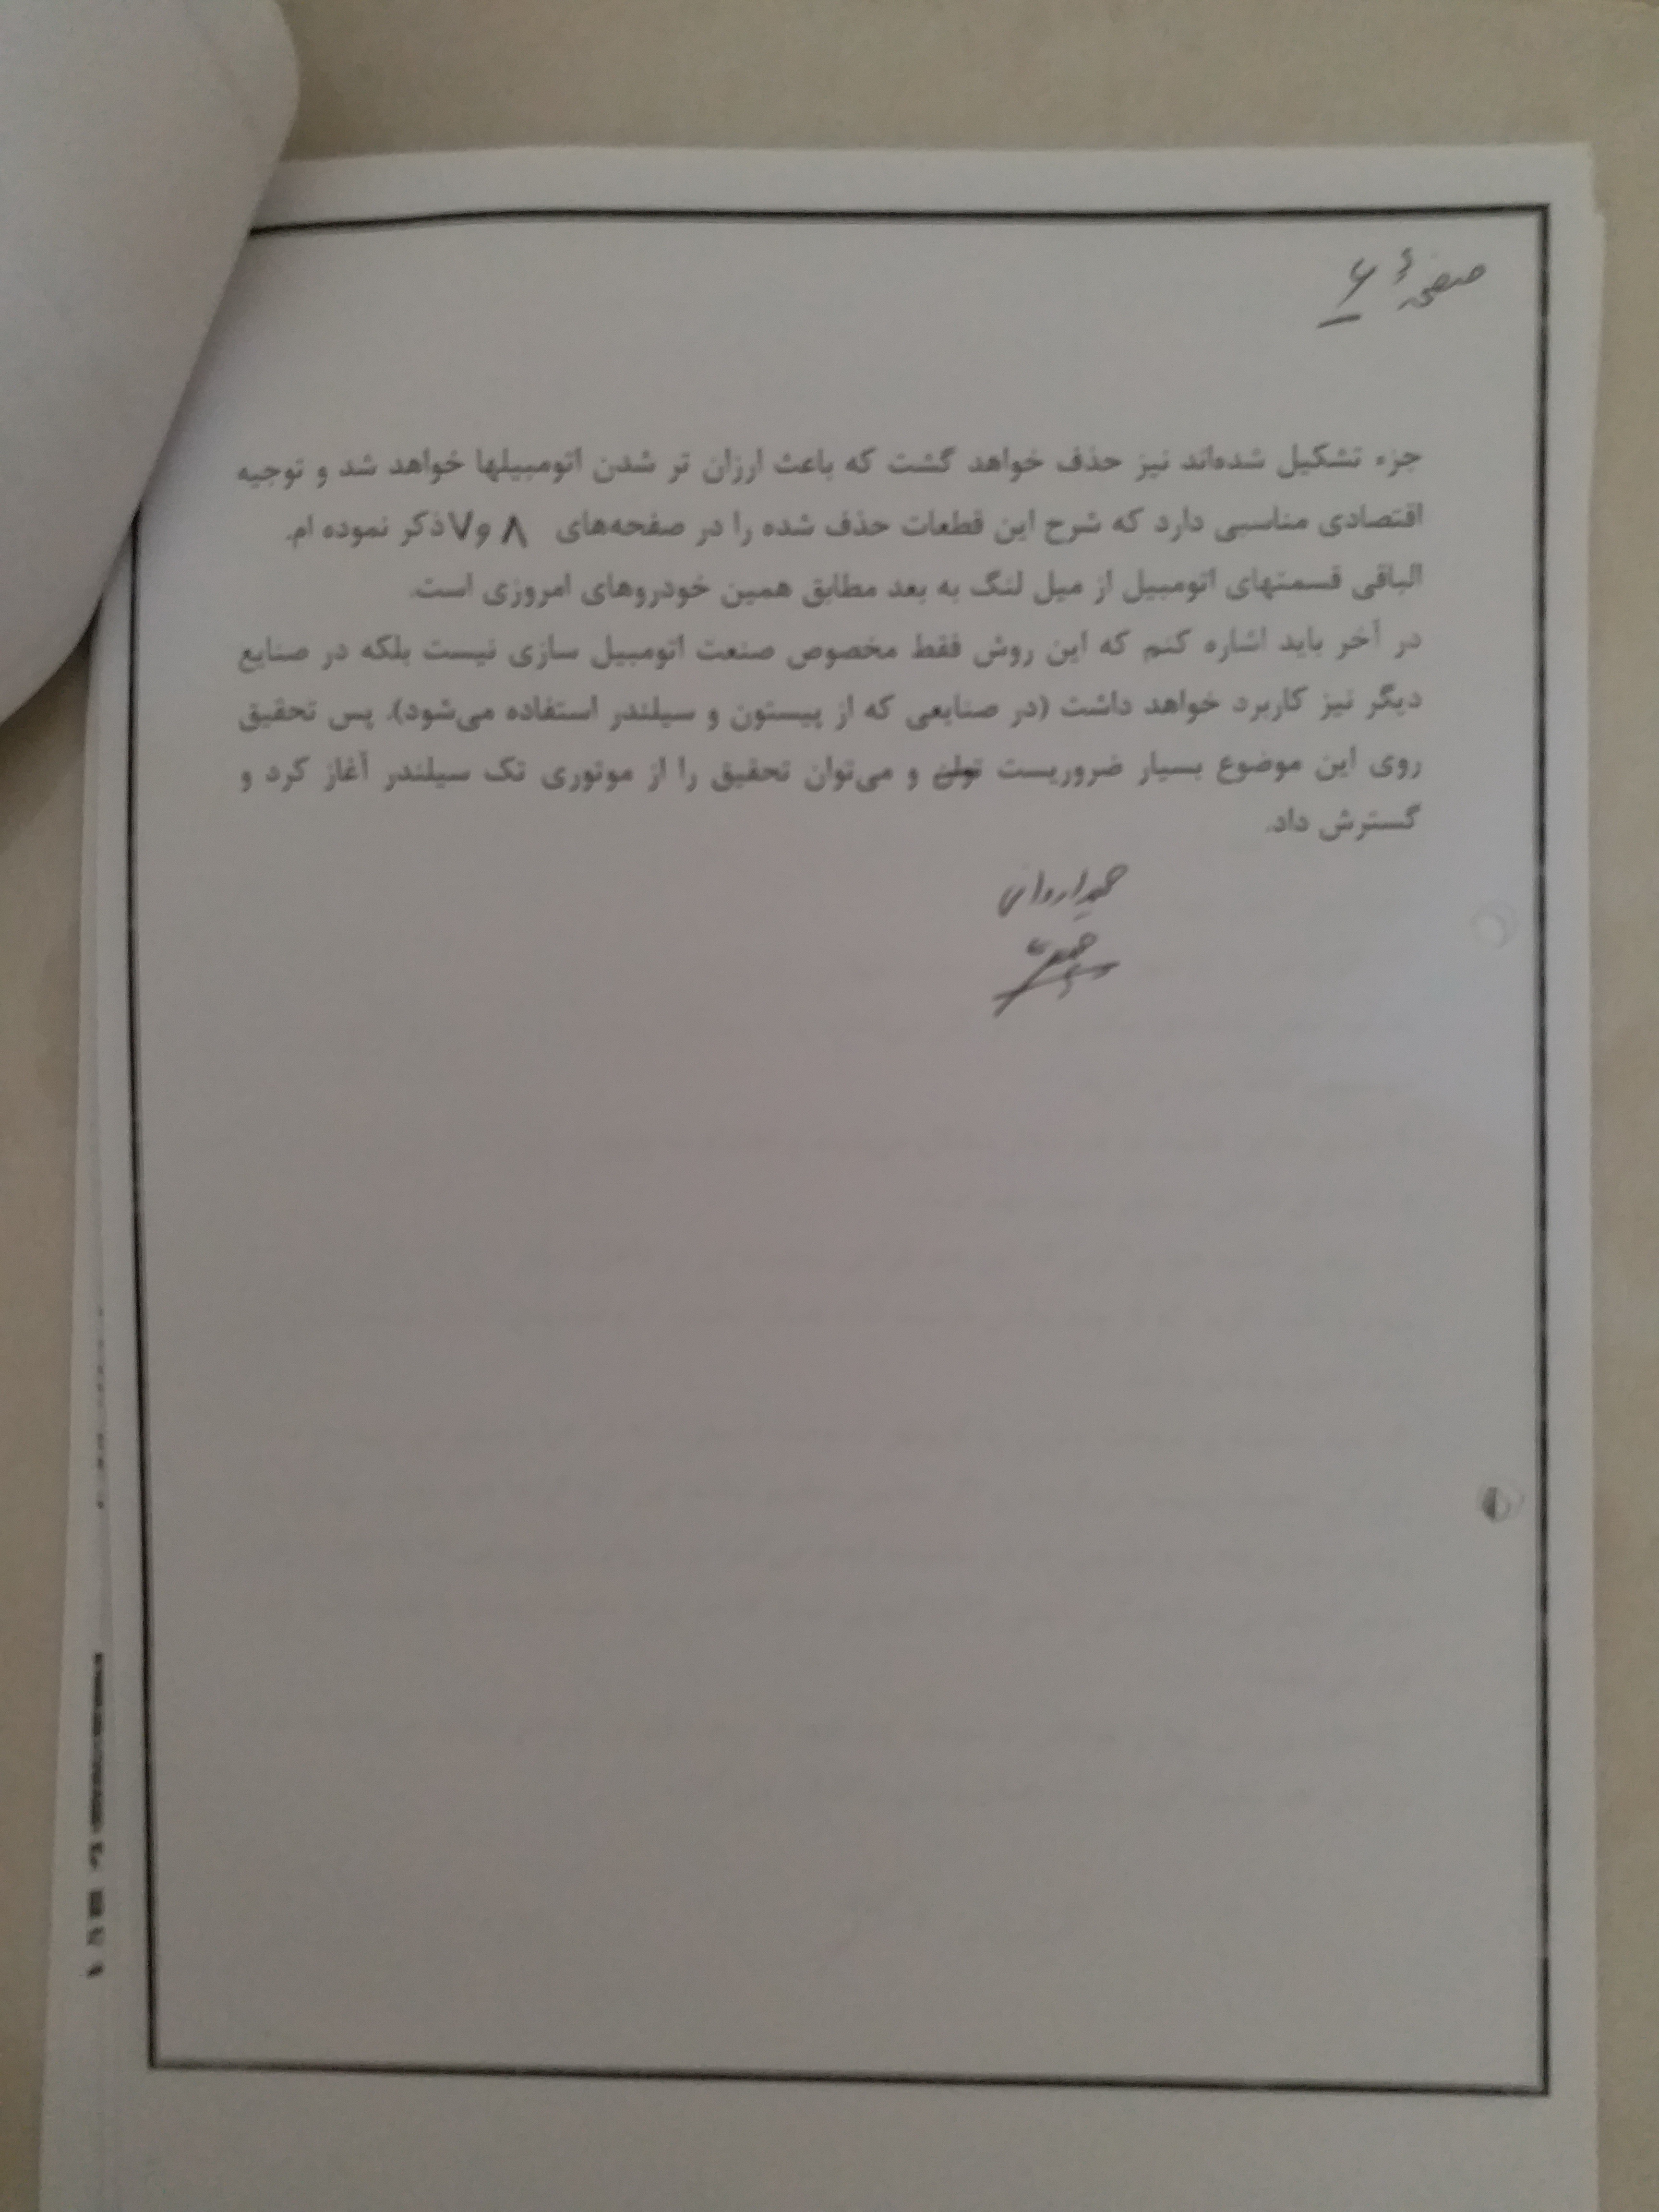 صفحهٔ ۶
جزء تشکیل شده‌اند نیز حذف خواهد گشت که باعث ارزان تر شدن اتومبیلها خواهد شد و توجیه
اقتصادی مناسبی دارد که شرح این قطعات حذف شده را در صفحه‌های ۸ و ۷ ذکر نموده ام.
الباقی قسمتهای اتومبیل از میل لنگ به بعد مطابق همین خودروهای امروزی است.
در آخر باید اشاره کنم که این روش فقط مخصوص صنعت اتومبیل سازی نیست بلکه در صنایع
دیگر نیز کاربرد خواهد داشت (در صنایعی که از پیستون و سیلندر استفاده می‌شود). پس تحقیق
روی این موضوع بسیار ضروریست و می‌توان تحقیق را از موتوری تک سیلندر آغاز کرد و
گسترش داد.